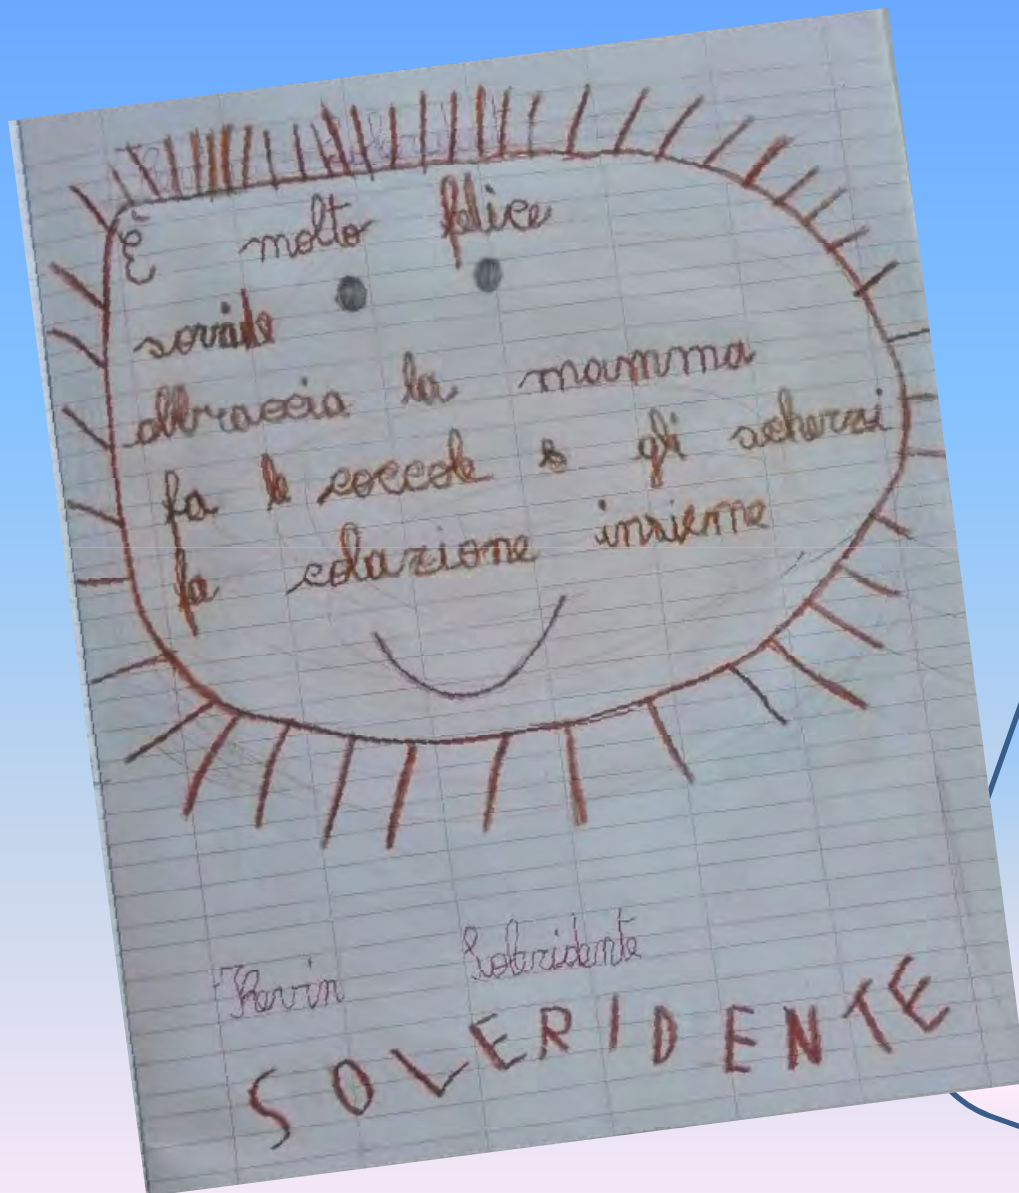 È molto felice
sorride
abbraccia la mamma
fa le coccole e gli scherzi
fa colazione insieme
Kevin Soleridente
SOLERIDENTE